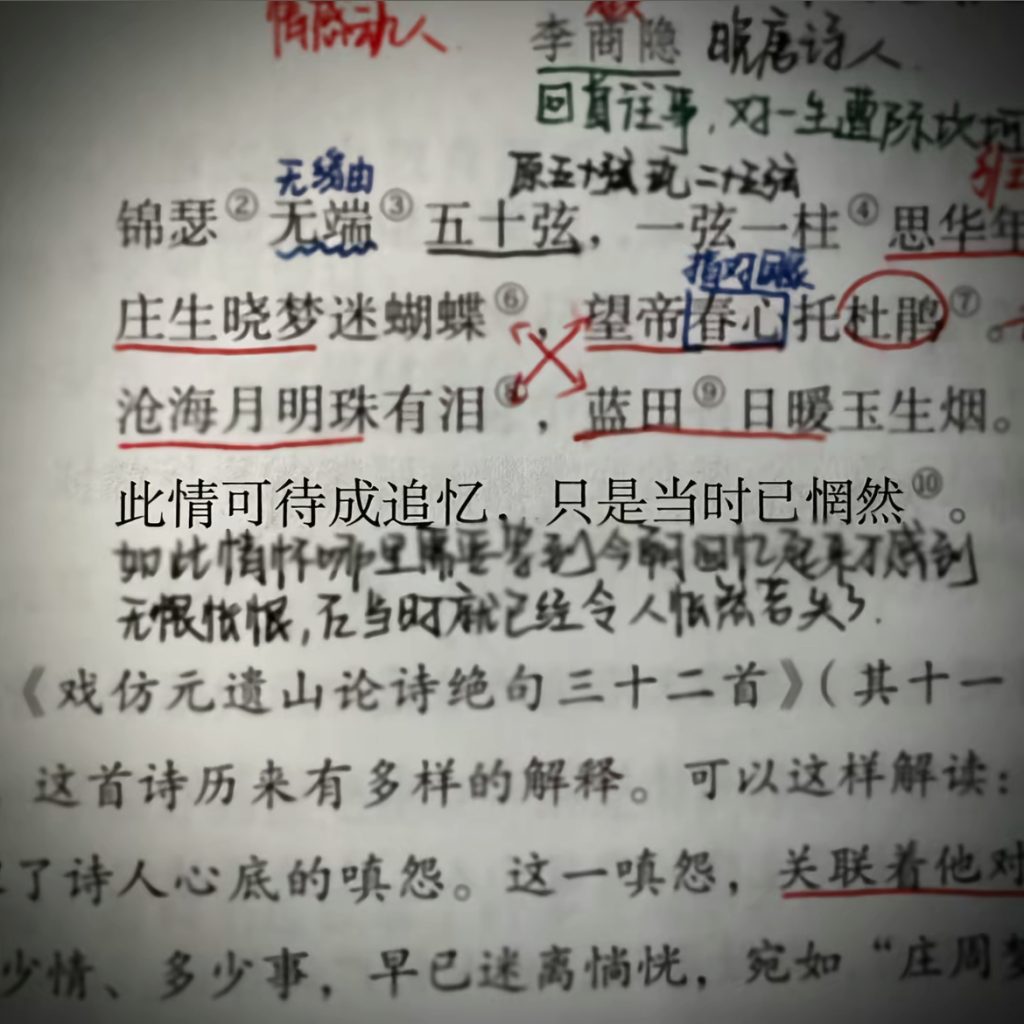 情感动人
李商隐 晚唐诗人
回首往事，对一生遭际坎坷
无缘由 原五十弦 瑟二十五弦
锦瑟②无端③五十弦，一弦一柱④思华年
庄生晓梦迷蝴蝶⑥，望帝春心托杜鹃⑦。
沧海月明珠有泪⑧，蓝田⑨日暖玉生烟。
此情可待成追忆，只是当时已惘然⑩。
如此情怀哪里需要等到今朝回忆起来才感到
无恨怅恨，在当时就已经令人怅然若失了.
《戏仿元遗山论诗绝句三十二首》（其十一
这首诗历来有多样的解释。可以这样解读：
了诗人心底的嗔怨。这一嗔怨，关联着他对
少情、多少事，早已迷离惝恍，宛如“庄周梦